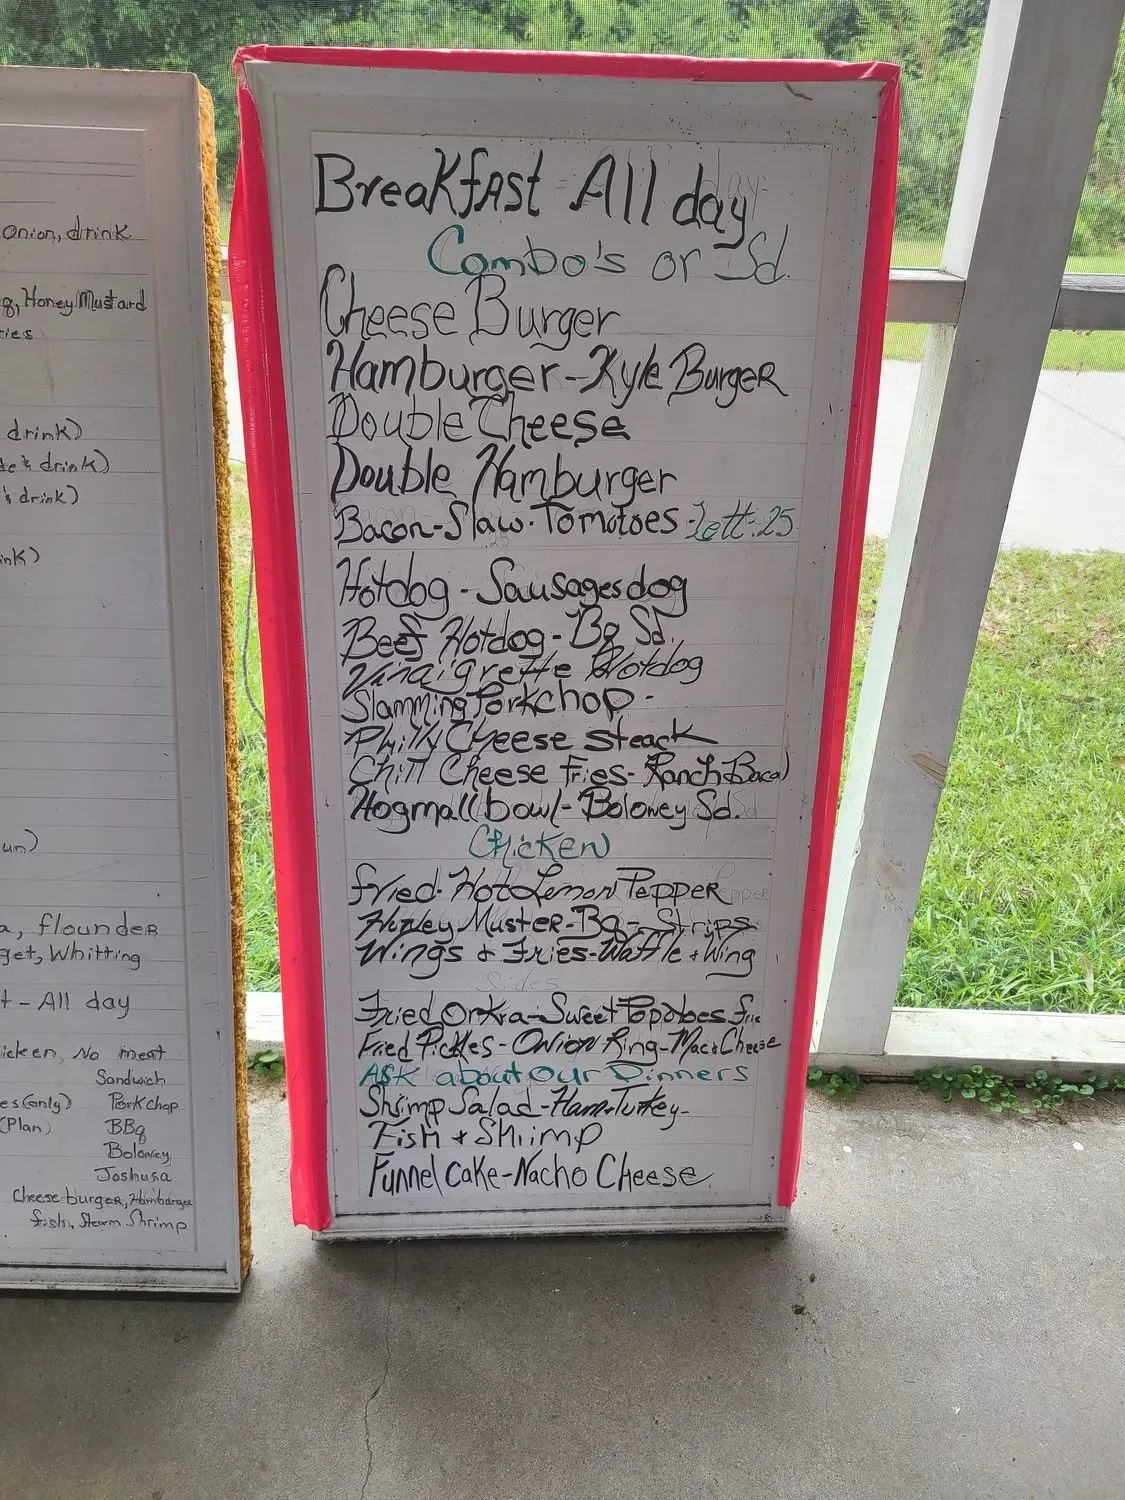 onion, drink
Honey Mustard
drink)
& drink)
's drink)
flounder
Whitting
- All day
No meat
Sandwich
(only) Porkchop
(Plan) BBq
Boloney
Joshusa
Cheeseburger, Hamburger
fish, Steam Shrimp
Breakfast All day
Combo's or Sd.
Cheese Burger
Hamburger--Kyle Burger
Double Cheese
Double Hamburger
Bacon-Slaw-Tomatoes-Lett-.25
Hotdog - Sausagesdog
Beef Hotdog-Bq Sd.
Vinaigrette Hotdog
Slamming Porkchop -
Philly Cheese steack
Chili Cheese Fries- Ranch Baco)
Hogmall bowl- Boloney Sd.
Chicken
Fried-Hot Lemon Pepper
Honey Muster-Bq- Strips
Wings & Fries-Waffle + Wing
Sides
Fried Orkra-Sweet Popotoes frie
Fried Pickles-Onion Ring-Mac & Cheese
Ask about Our Dinners
Shrimp Salad-Ham+Turkey-
Fish + Shrimp
Funnel cake-Nacho Cheese